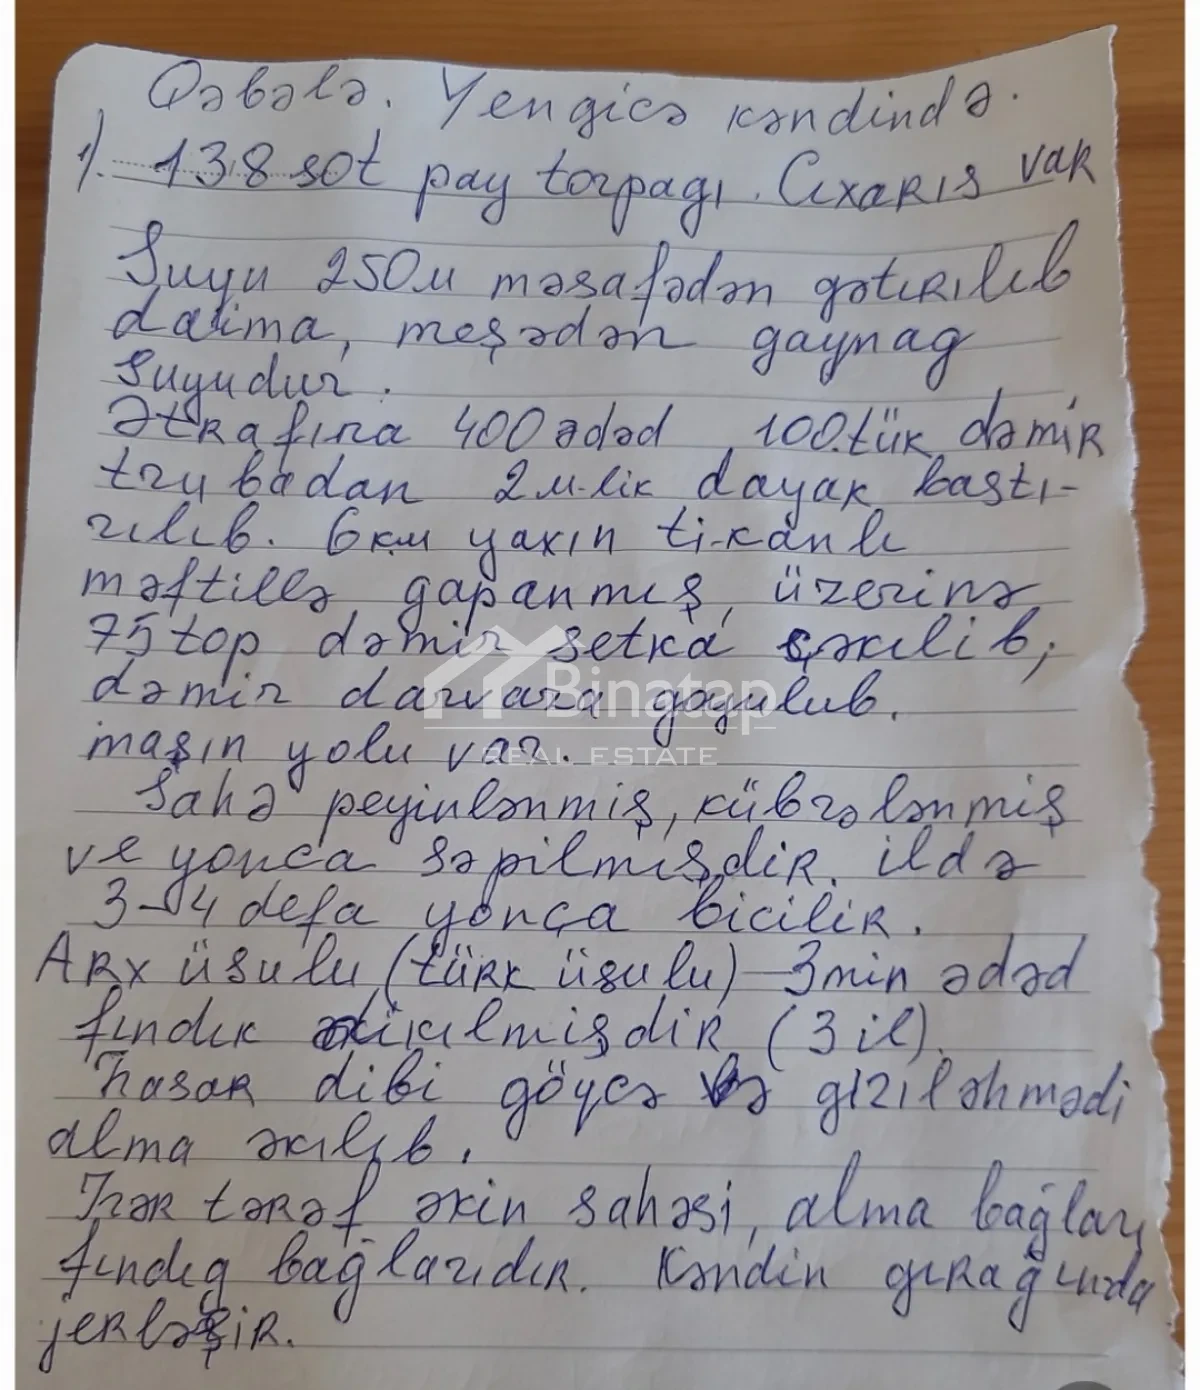 Qəbələ. Yengicə kəndində.
1). 138 sot pay torpagı. Cıxarıs var
Suyu 250м məsafədən gətırılıb
daima, meşədən gaynag
suyudur.
Ətrafına 400 ədəd 100.tük dəmir
trubadan 2м-lik dayak bastı-
rılıb. 6км yaxın ti-kanlı
məftillə gapanmış, üzerinə
75 top dəmir setka çəkılib,
dəmir darvaza goyulub.
maşın yolu var.
Binatap
REAL ESTATE
Sahə peyinlənmiş, kübrələnmiş
ve yonca səpilmişdir. ildə
3-4 defa yonça bicilir.
Arx üsulu (türk üsulu) - 3 min ədəd
fındık əkılmişdir (3 il).
hasar dibi göycə və gızıləhmədi
alma əkılıb.
hər tərəf əkin sahəsi, alma bağları
fındıg bağlarıdır. Kəndin gırağında
jerləşir.